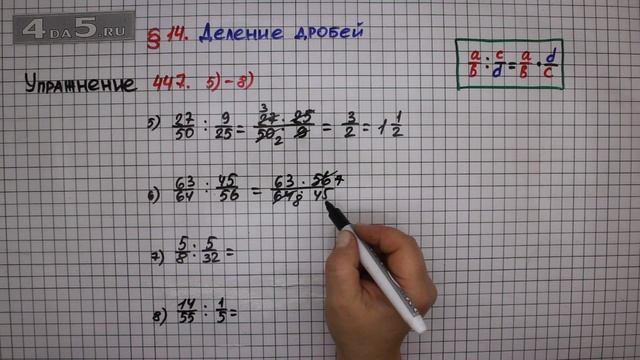 4DA5.RU
§ 14. Деление дробей
a/b : c/d = a/b · d/c
Упражнение 447. 5)-8)
5) 27/50 : 9/25 = 3 27 · 25 / 50 2 · 9 = 3/2 = 1 1/2
6) 63/64 : 45/56 = 63 · 56 7 / 64 8 · 45
7) 5/8 : 5/32 =
8) 14/55 : 1/5 =